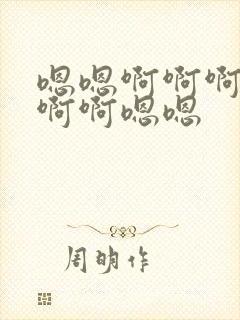 嗯嗯啊啊啊
啊啊嗯嗯
周明作